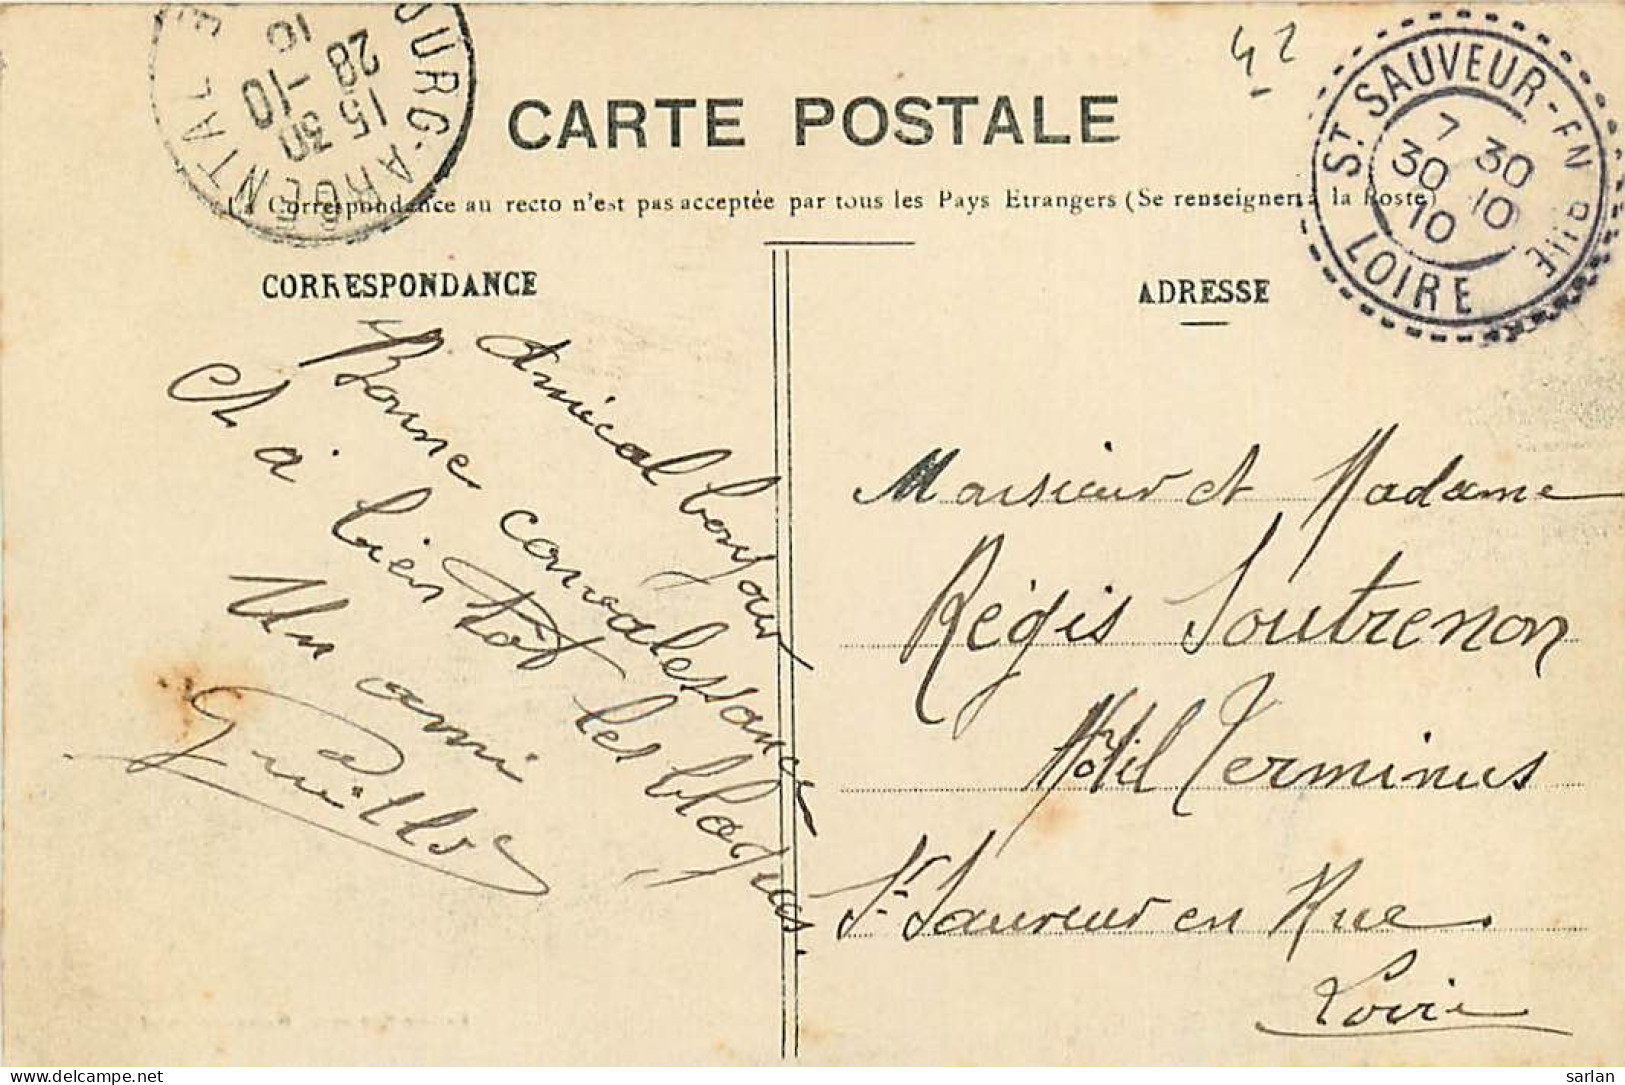 BOURG-ARGENTAL
15 30
28 -10
10
42
ST SAUVEUR-EN RUE
7 30
30 10
10
LOIRE
CARTE POSTALE
La Correspondance au recto n'est pas acceptée par tous les Pays Etrangers (Se renseigner à la Poste)
CORRESPONDANCE
Amical bonjour
Bonne convalessance
et à bientôt les blagues.
Un ami
ADRESSE
Monsieur et Madame
Régis Soutrenon
Hôtel Terminus
St Sauveur en Rue
Loire
sarlan